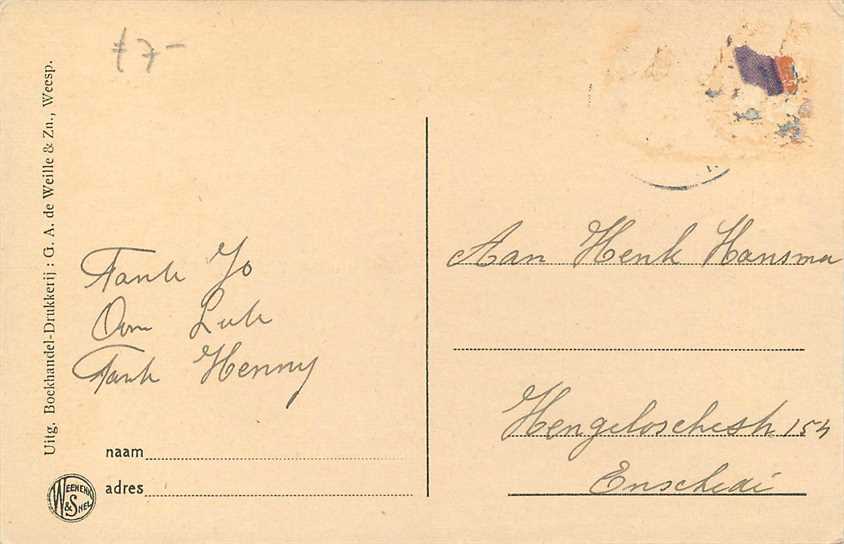 £ 7-
Uitg. Boekhandel-Drukkerij : G. A. de Weille & Zn., Weesp.
Tante Jo
Oom Luth
Tante Henny
naam
adres
WEENENK & SNEL
Aan Henk Hansma
Hengeloschestr 154
Enschede